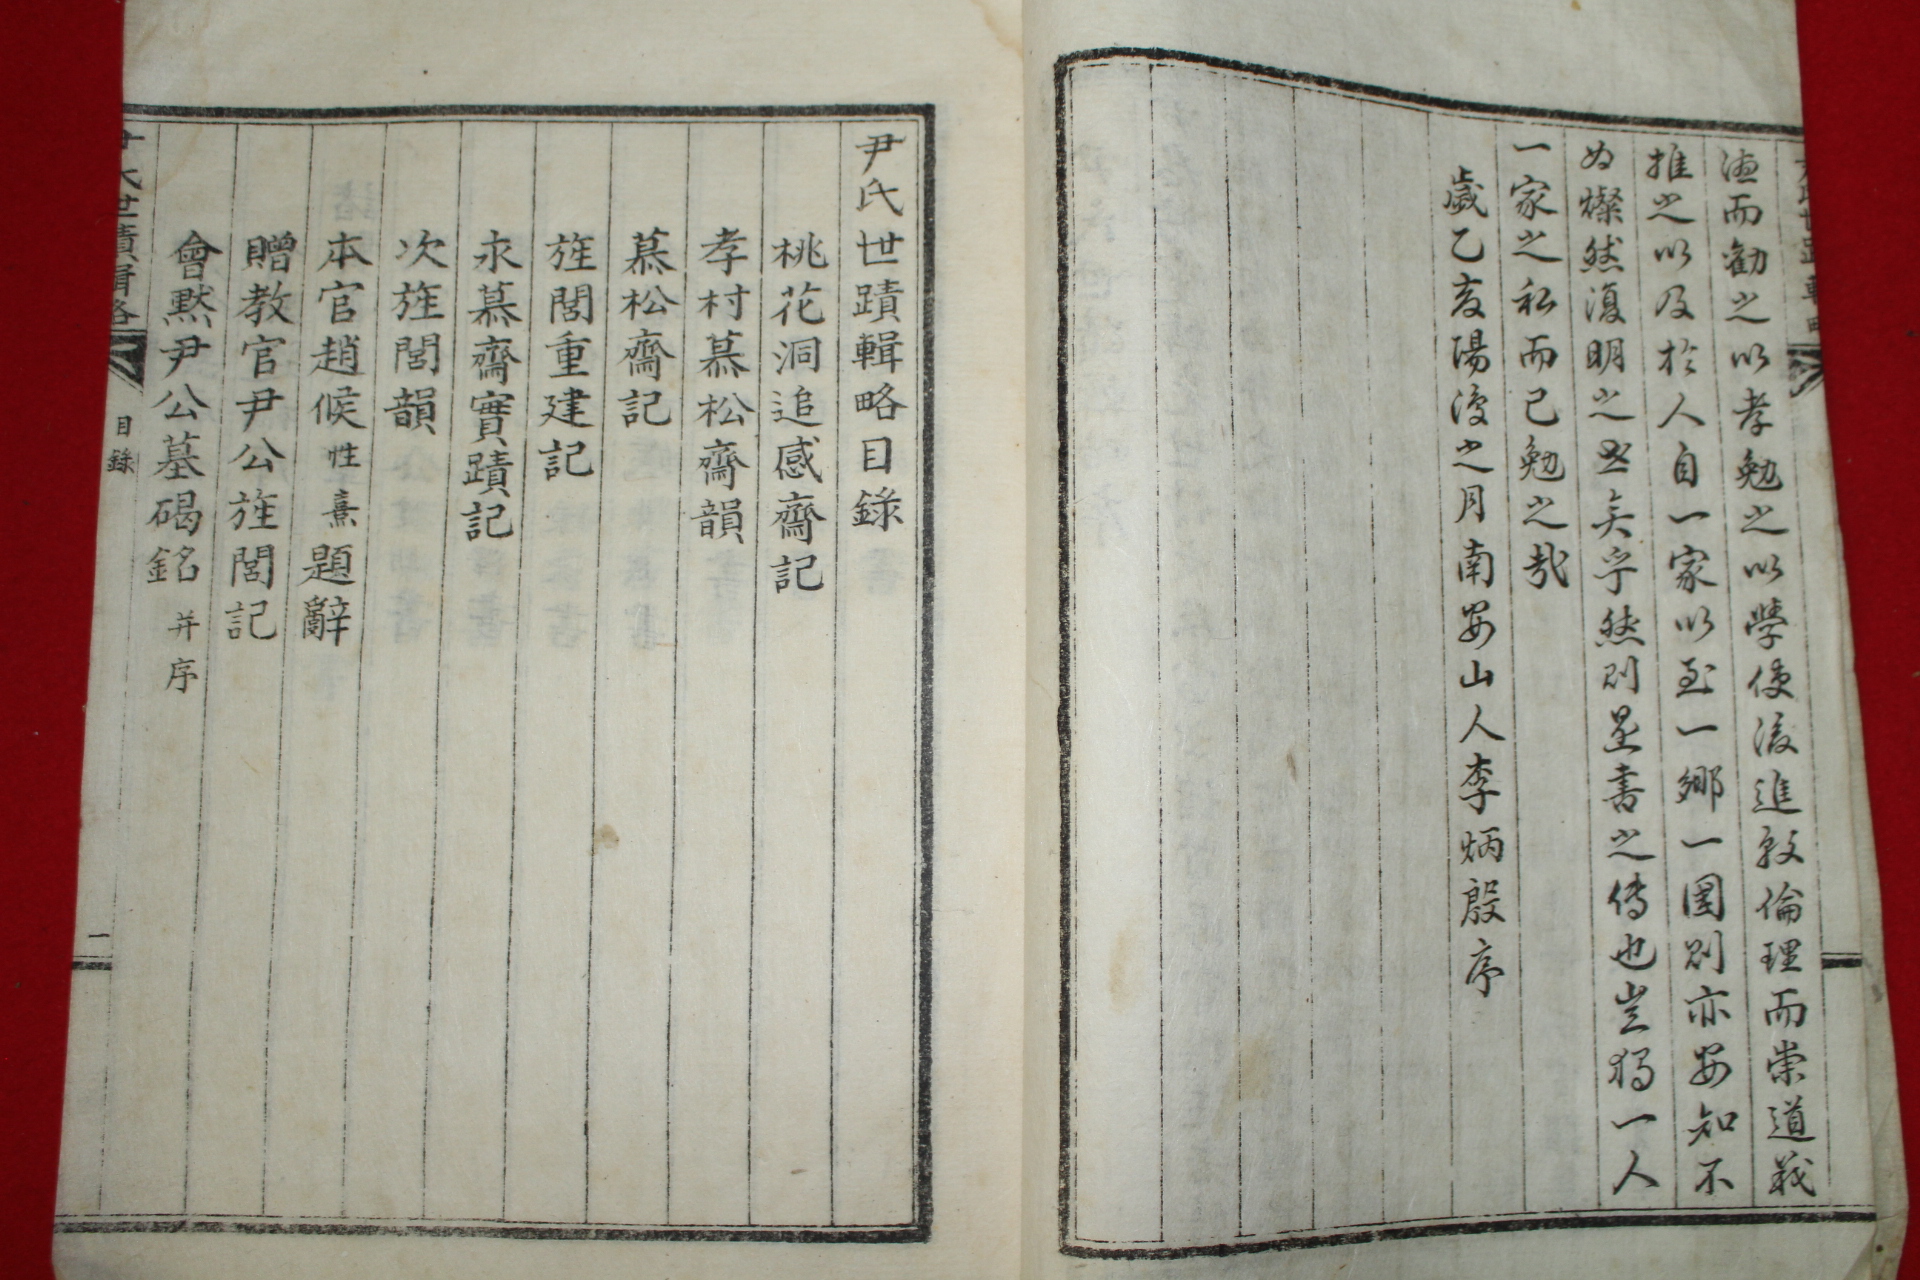 德而勸之以孝勉之以學使後進敦倫理而崇道義
推之以及於人自一家以至一鄉一國則亦安知不
如燦然復明之世矣乎然則是書之傳也豈獨一人
一家之私而已勉之哉
歲乙亥陽復之月南安山人李炳殷序
尹氏世蹟輯略目錄
桃花洞追感齋記
孝村慕松齋韻
慕松齋記
旌閭重建記
永慕齋實蹟記
次旌閭韻
本官趙候性熹題辭
贈教官尹公旌閭記
會黙尹公墓碣銘并序
尹氏世蹟輯略 目錄 一